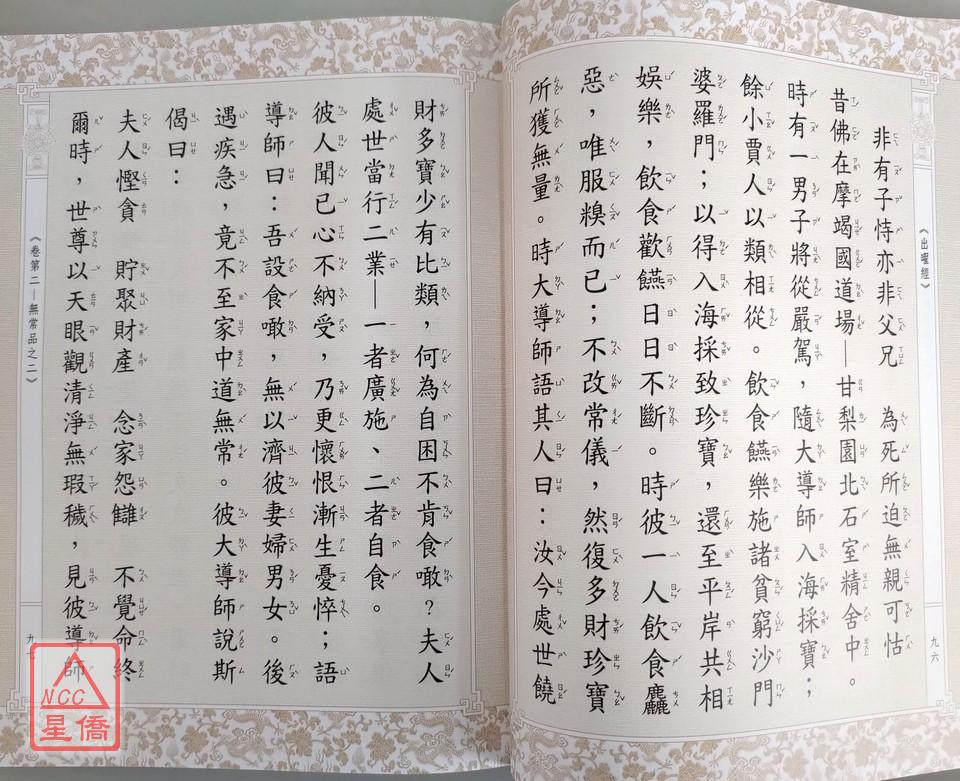 《出曜經》
九六
非有子恃亦非父兄　為死所迫無親可怙
昔佛在摩竭國道場—甘梨園北石室精舍中。
時有一男子將從嚴駕，隨大導師入海採寶；
餘小賈人以類相從。飲食饍樂施諸貧窮沙門
婆羅門；以得入海採致珍寶，還至平岸共相
娛樂，飲食歡饍日日不斷。時彼一人飲食麤
惡，唯服糗而已；不改常儀，然復多財珍寶
所獲無量。時大導師語其人曰：汝今處世饒
財多寶少有比類，何為自困不肯食噉？夫人
處世當行二業—一者廣施、二者自食。
彼人聞已心不納受，乃更懷恨漸生憂悴；語
導師曰：吾設食噉，無以濟彼妻婦男女。後
遇疾急，竟不至家中道無常。彼大導師說斯
偈曰：
夫人慳貪　貯聚財產　念家怨讎　不覺命終
爾時，世尊以天眼觀清淨無瑕穢，見彼導師
《卷第二—無常品之二》
NCC
星僑